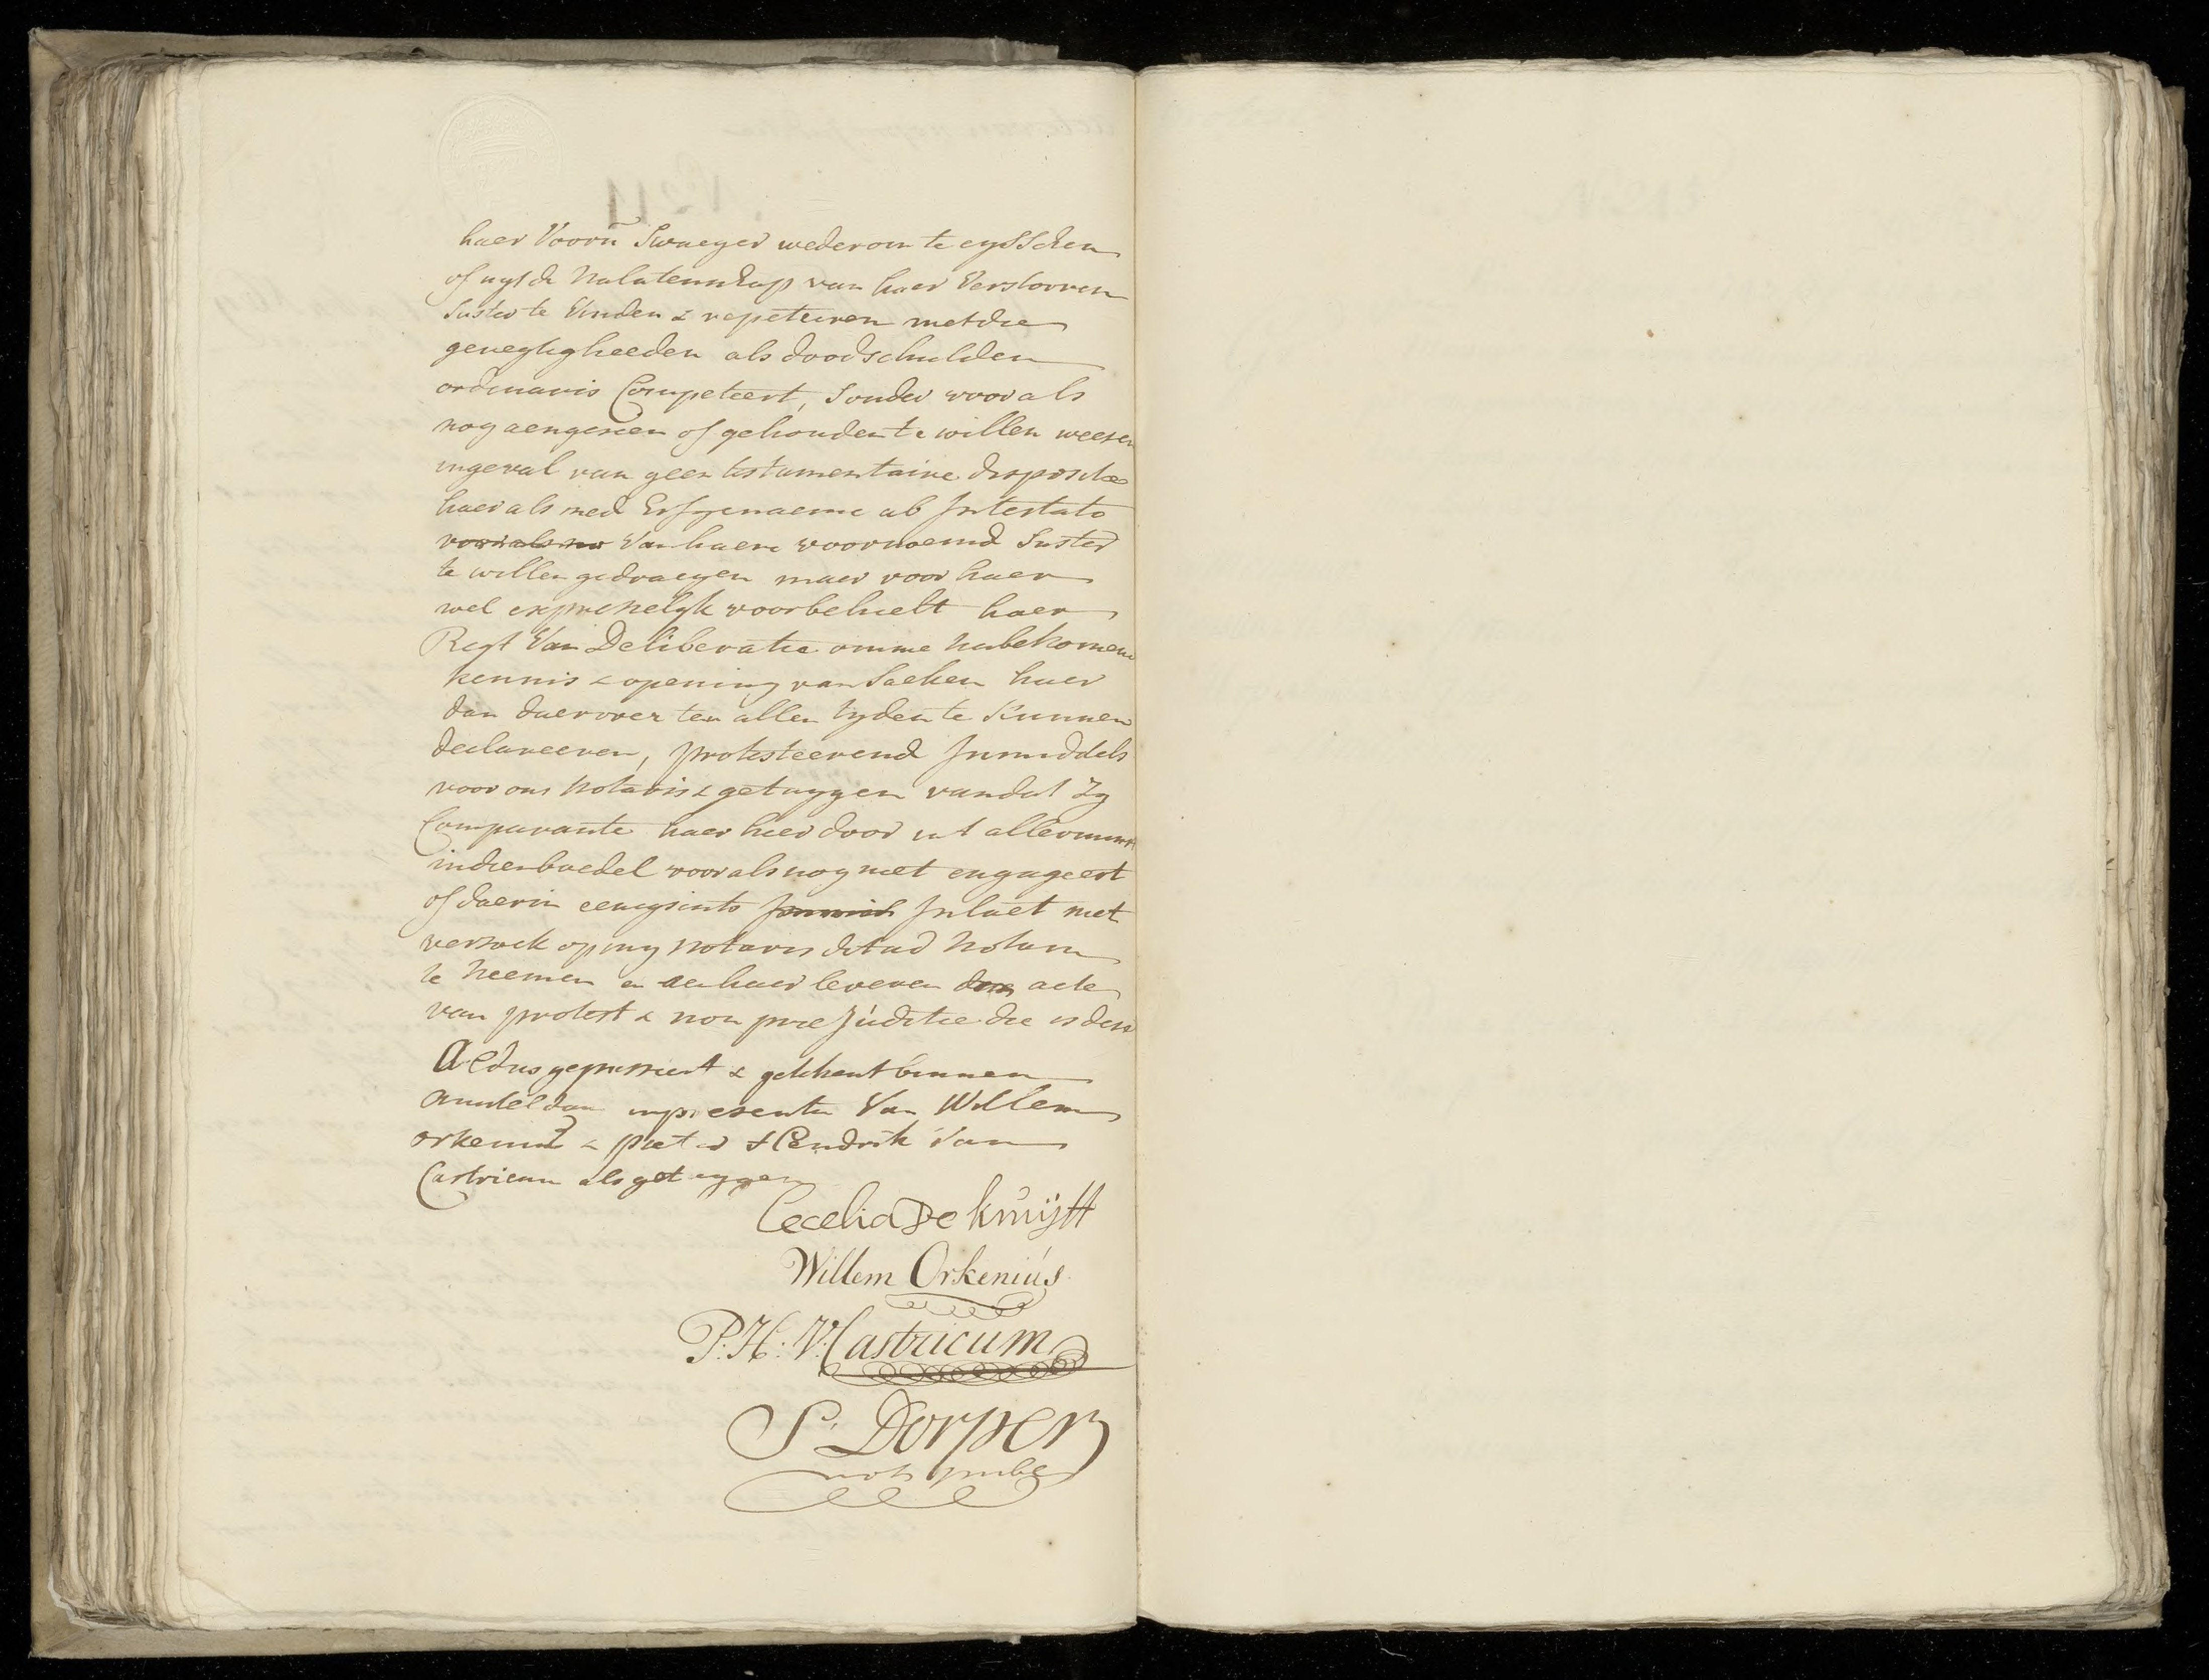 haer Voorn̄ Swaeger wederom te eysschen
of uyt de Nalatenschap van haer Verstorven
Suster te Vinden & repeteeren met die
geregtigheeden als doodschulden
ordinaris Competeert, sonder voor als
nog aengesien of gehouden te willen weesen
ingeval van geen testamentaire dispositie
haer als med Erfgenaeme ab Intestato
voor als no Van haere voornoemd Suster
te willen gedraegen maer voor haer
wel expresselyk voorbehielt haer
Regt Van Deliberatie omme nabekomene
kennis & opening van Saeken haer
dan daerover ten allen tyden te kunnen
declareeren, protesteerend Inmiddels
voor ons Notaris & getuygen van dat Zy
Comparante haer hier door int allerminste
in dien boedel voor als nog niet engageert
of daerin eenigsints Inlaet met
versoek op my notaris dit ad Notam
te neemen en aen haer leveren acte
van protest & non præjuditie die is dese
Aldus gepasseert & gekhent binnen
Amsteldam in presentie Van Willem
orkenius & Pieter Hendrik Van
Castricum als getuygen
Cecelia De kruijff
Willem Orkeniús
P: H: V: Castricum
S: Dorper
nots publ